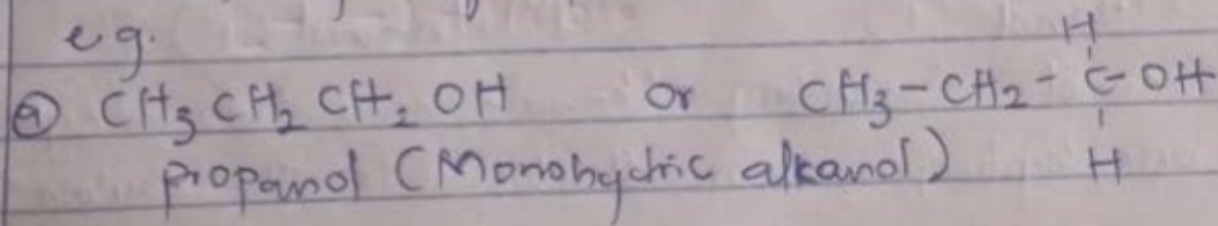 eg.
H
ⓐ CH₃ CH₂ CH₂ OH or CH₃-CH₂-C-OH
propanol (Monohydric alkanol) H